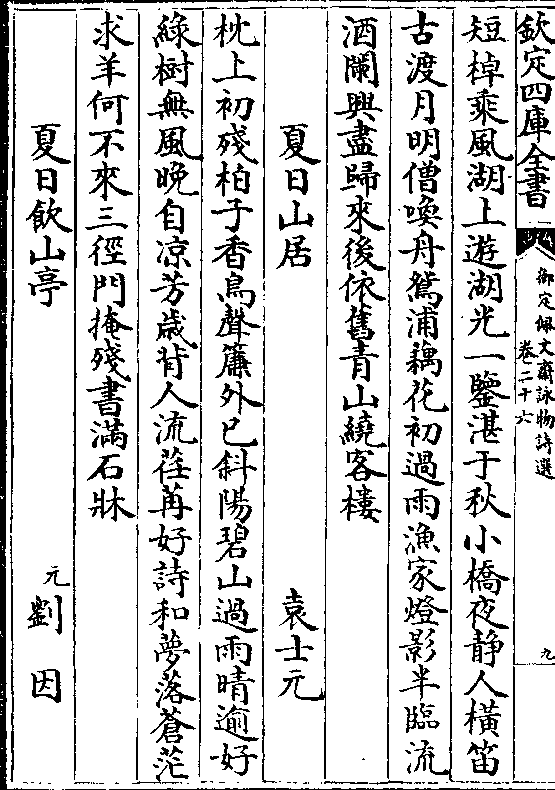 欽定四庫全書
御定佩文齋詠物詩選
卷二十六
九
短棹乘風湖上遊湖光一鑒湛于秋小橋夜静人橫笛
古渡月明僧喚舟鴛浦藕花初過雨漁家燈影半臨流
酒闌興盡歸來後依舊青山繞客樓
夏日山居 袁士元
枕上初殘柏子香鳥聲簾外已斜陽碧山過雨晴逾好
綠樹無風晚自凉芳歳背人流荏苒好詩和夢落蒼茫
求羊何不來三徑門掩殘書滿石牀
夏日飲山亭 元劉因